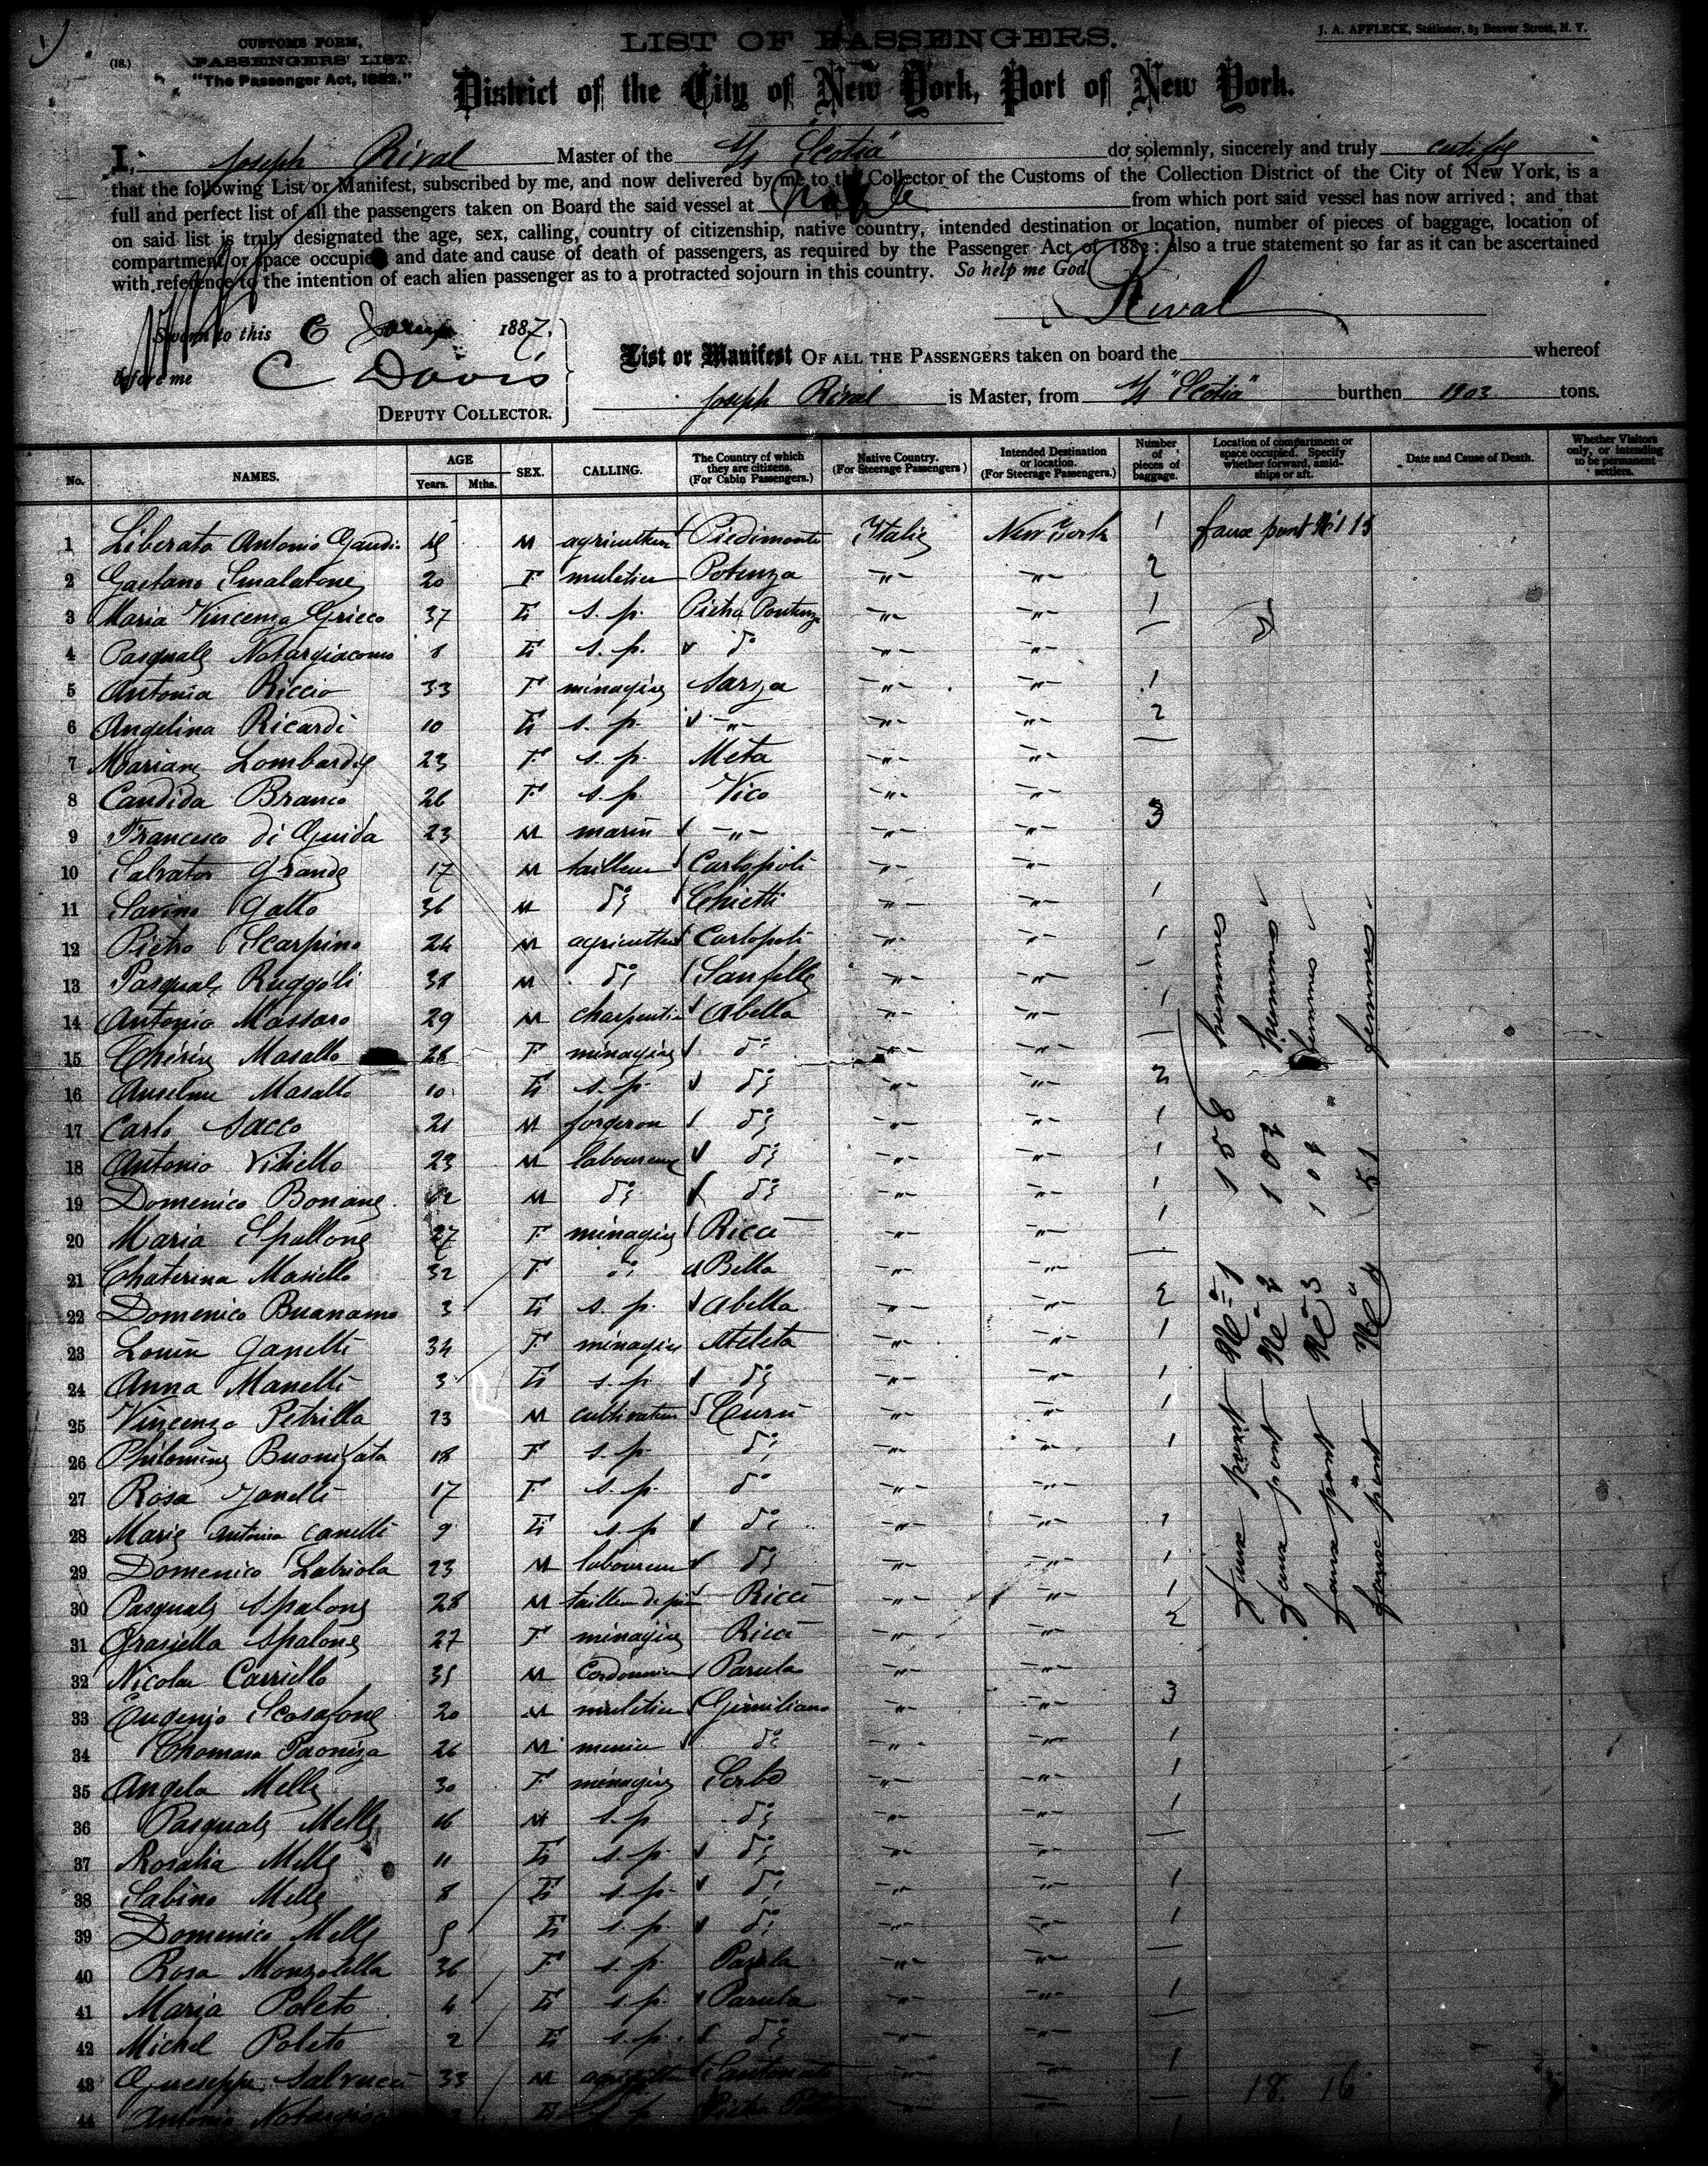 J. A. AFFLECK, Stationer, 83 Beaver Street, N. Y.
(18.)
CUSTOMS FORM,
PASSENGERS' LIST.
"The Passenger Act, 1882."
LIST OF PASSENGERS.
District of the City of New York, Port of New York.
I, Joseph Rival Master of the S/S "Scotia" do, solemnly, sincerely and truly certify
that the following List or Manifest, subscribed by me, and now delivered by me to the Collector of the Customs of the Collection District of the City of New York, is a
full and perfect list of all the passengers taken on Board the said vessel at Naple from which port said vessel has now arrived; and that
on said list is truly designated the age, sex, calling, country of citizenship, native country, intended destination or location, number of pieces of baggage, location of
compartment or space occupied and date and cause of death of passengers, as required by the Passenger Act of 1882: Also a true statement so far as it can be ascertained
with reference to the intention of each alien passenger as to a protracted sojourn in this country. So help me God
Rival
Sworn to this 6 1887,
before me C Davis
DEPUTY COLLECTOR.
List or Manifest OF ALL THE PASSENGERS taken on board the whereof
Joseph Rival is Master, from S/S "Scotia" burthen 1903 tons.
No. NAMES. AGE Years. Mths. SEX. CALLING. The Country of which they are citizens. (For Cabin Passengers.) Native Country. (For Steerage Passengers) Intended Destination or location. (For Steerage Passengers) Number of pieces of baggage. Location of compartment or space occupied. Specify whether forward, amid-ships or aft. Date and Cause of Death. Whether Visitors only, or intending to be permanent settlers.
1 Liberato Antonio M Piedimonte Italie New York 1 faux pont
2 Gaetano 20 F muletier Potenza -"- -"- 2
3 Maria Vincenza Grieco 37 E s. p. Pietra -"- -"- 1
4 Pasquale Notargiacomo 8 E s. p. do -"- -"-
5 Antonia Riccio 33 F ménagère -"- -"- 1
6 Angelina Ricardi 10 E s. p. -"- -"- -"- 2
7 Mariane Lombardy 23 F s. p. Meta -"- -"-
8 Candida Branco 26 F s. p. Vico -"- -"-
9 Francesco di Guida 23 M marin -"- -"- -"- 3
10 Salvator Grande 17 M tailleur Carlopoli -"- -"-
11 Savino Gallo 36 M do Chietti -"- -"- 1
12 Pietro Scarpino 24 M agriculteur Carlopoli -"- -"- 1
13 Pasquale Ruggoli 38 M do Sanfelle -"- -"-
14 Antonio Massaro 29 M charpentier Abella -"- -"- 1
15 Masallo 28 F ménagère do -"- -"-
16 Anselme Masallo 10 E s. p. do -"- -"- 2
17 Carlo Sacco 21 M forgeron do -"- -"- 1
18 Antonio Vitiello 23 M laboureur do -"- -"- 1
19 Domenico Bonane M do do -"- -"- 1
20 Maria Spallone 27 F ménagère Ricci -"- -"- 1
21 Chaterina Masiello 32 F do Bella -"- -"-
22 Domenico Buanamo 3 E s. p. Abella -"- -"- 2
23 Ganelli 34 F ménagère Ateleta -"- -"- 1
24 Anna Manelli 3 E s. p. do -"- -"- 1
25 Vincenzo Petrilla 23 M cultivateur -"- -"- 1
26 18 F s. p. do -"- -"- 1
27 Rosa Janelli 17 F s. p. do -"- -"-
28 Marie Antonia Canelli 9 E s. p. do -"- -"- 1
29 Domenico Labriola 23 M laboureur do -"- -"- 1
30 Pasquale Spalone 28 M Ricci -"- -"- 1
31 Grasiella Spalone 27 F ménagère Ricci -"- -"- 2
32 Nicolas Carriello 35 M Cordonnier Paruta -"- -"-
33 Eugenio 20 M muletier Gimiliano -"- -"- 3
34 26 M do -"- -"- 1
35 Angela Melle 30 F ménagère -"- -"- 1
36 Pasquale Melle 16 M s. p. do -"- -"- 1
37 Rosalia Melle 11 E s. p. do -"- -"-
38 Sabino Melle 8 E s. p. do -"- -"- 1
39 Domenico Melle 5 E s. p. do -"- -"- 1
40 Rosa 36 F s. p. Paruta -"- -"-
41 Maria Poleto E s. p. Paruta -"- -"- 1
42 Michel Poleto 2 E s. p. do -"- -"-
43 Guiseppe 33 M -"- -"- 1
44 Antonio E s. p. Pietra
Faux pont No 1 158 hommes
Faux pont No 2 hommes
faux pont No 3 femmes
faux pont No 4 51 femmes
18. 16